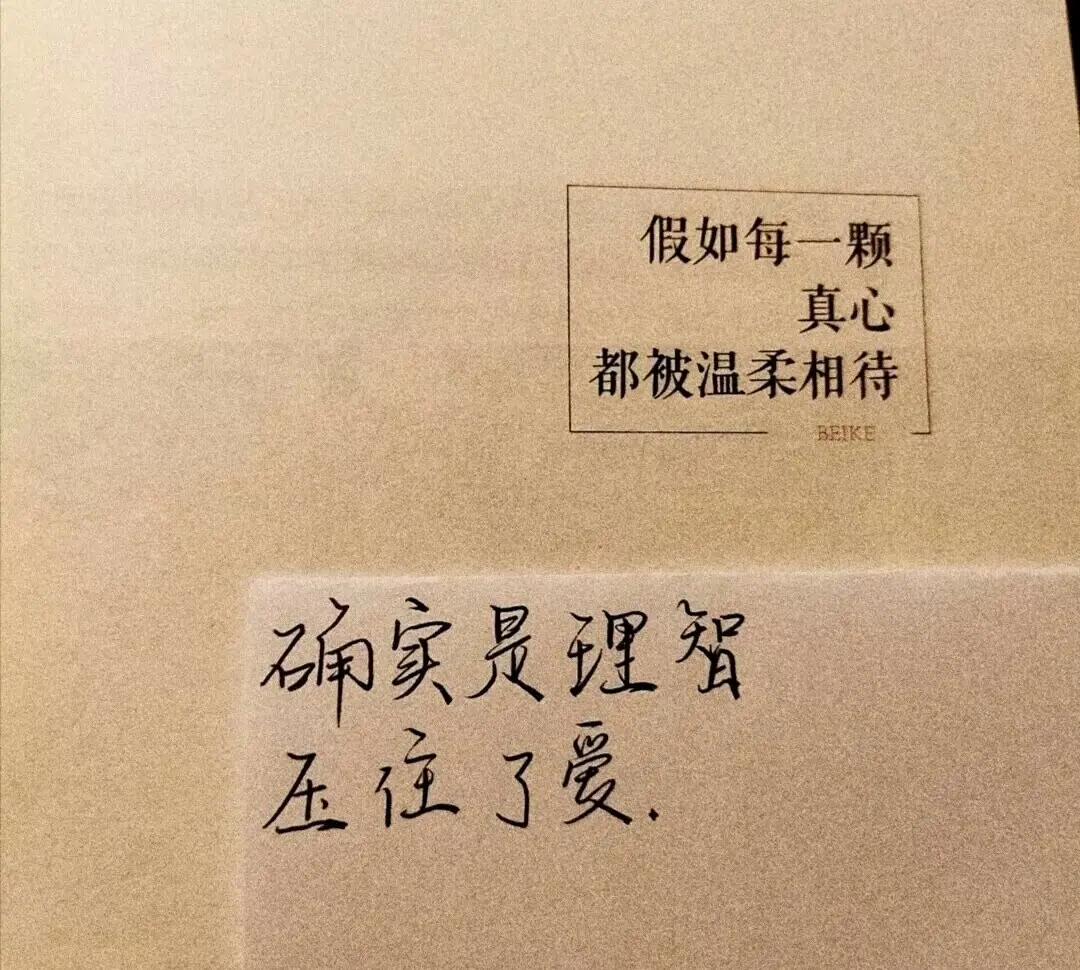 假如每一颗
真心
都被温柔相待
BEIKE
确实是理智
压住了爱.